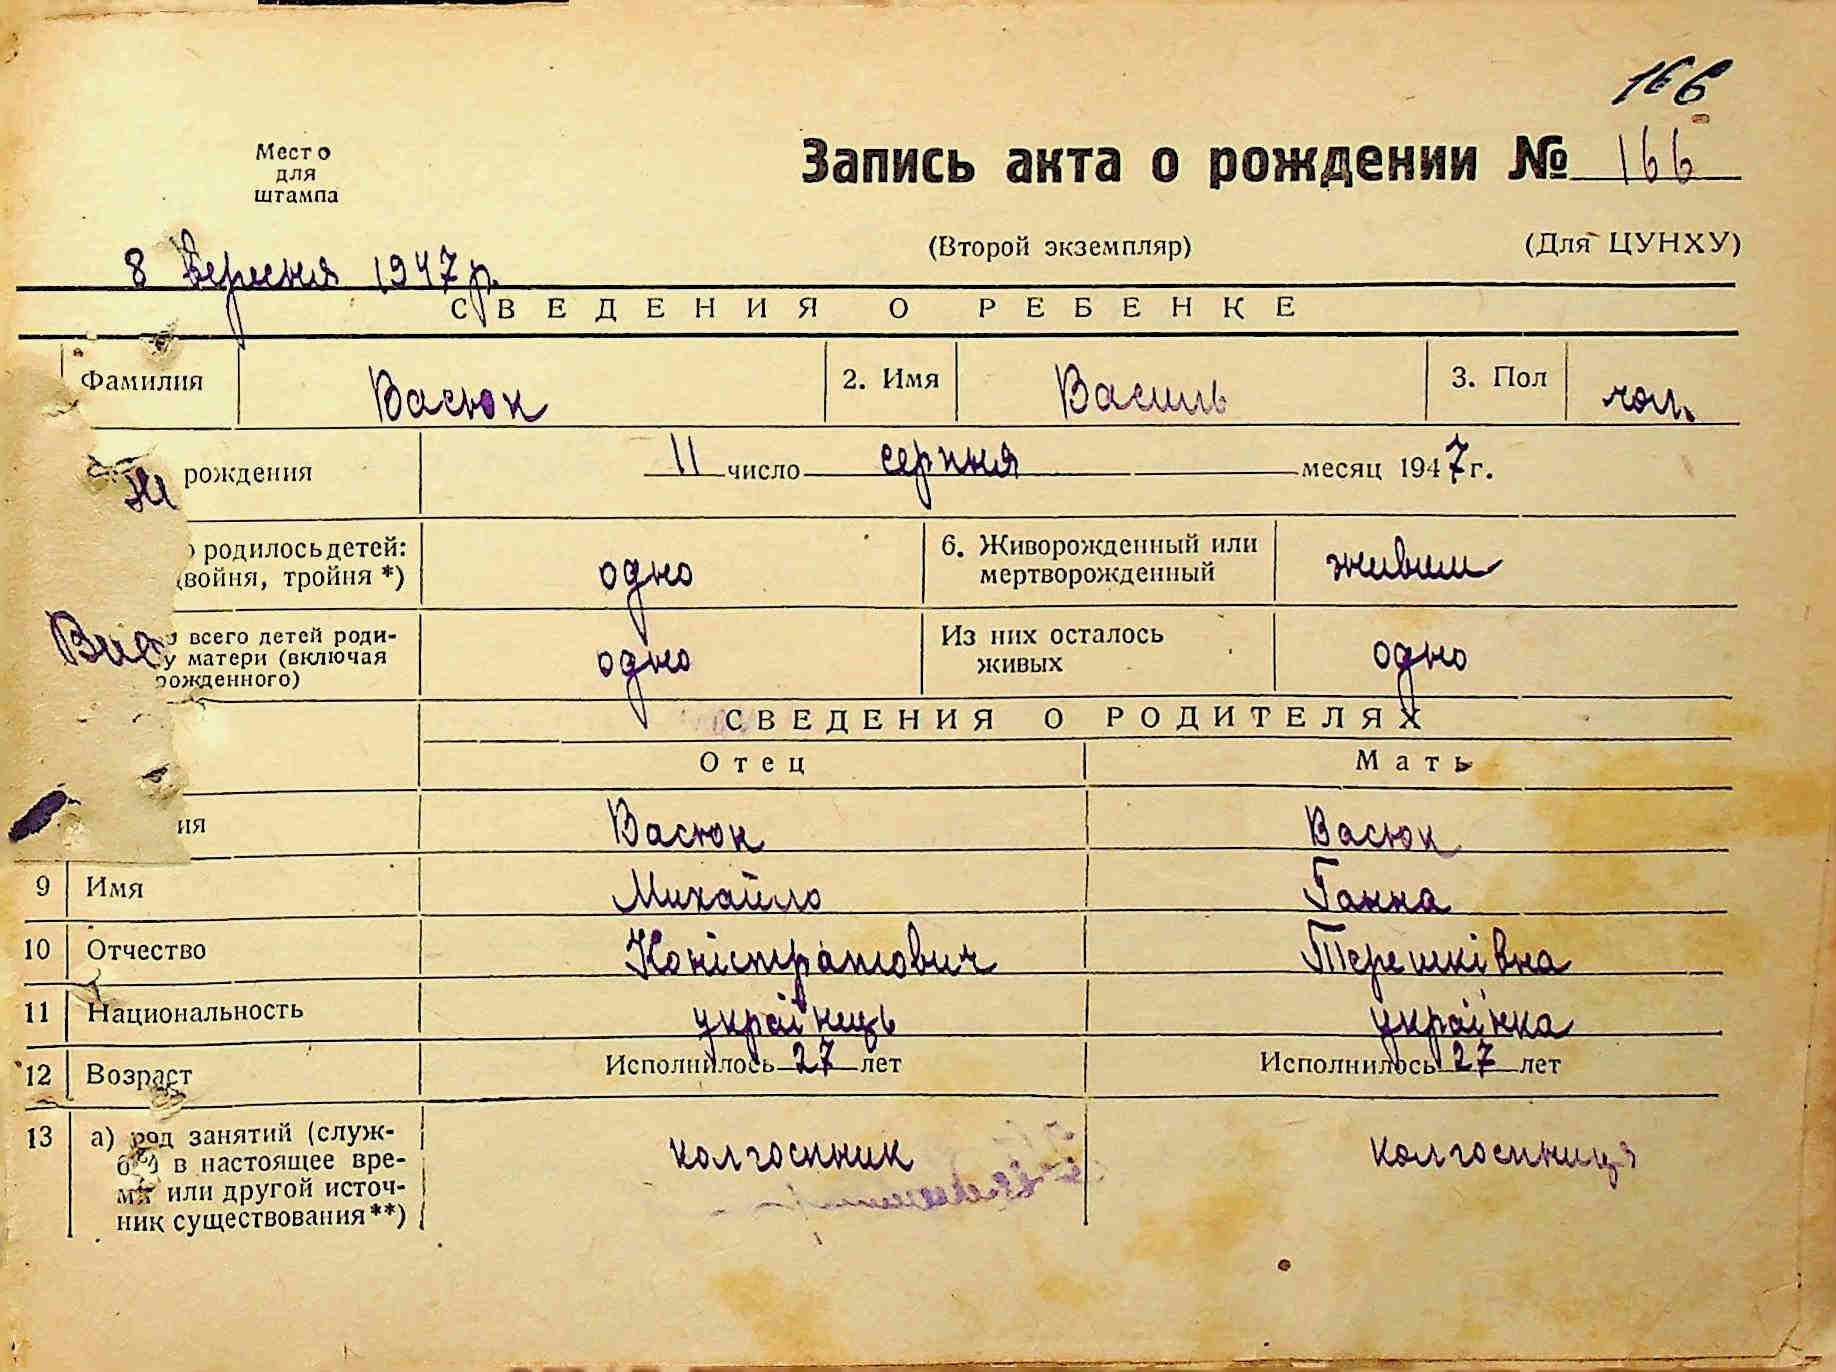 166
Место
для
штампа
Запись акта о рождении № 166
(Второй экземпляр) (Для ЦУНХУ)
8 вересня 1947 р.
СВЕДЕНИЯ О РЕБЕНКЕ
Фамилия Васюк 2. Имя Василь 3. Пол чол.
рождения 11 число серпня месяц 1947 г.
родилось детей: одно 6. Живорожденный или живим
войня, тройня *) мертворожденный
всего детей роди- одно Из них осталось одно
у матери (включая живых
рожденного)
СВЕДЕНИЯ О РОДИТЕЛЯХ
Отец Мать
ия Васюк Васюк
9 Имя Михайло Ганна
10 Отчество Коністратович Терешківна
11 Национальность українець українка
12 Возраст Исполнилось 27 лет Исполнилось 27 лет
13 а) род занятий (служ- колгоспник колгоспниця
ба) в настоящее вре-
мя или другой источ-
ник существования **)